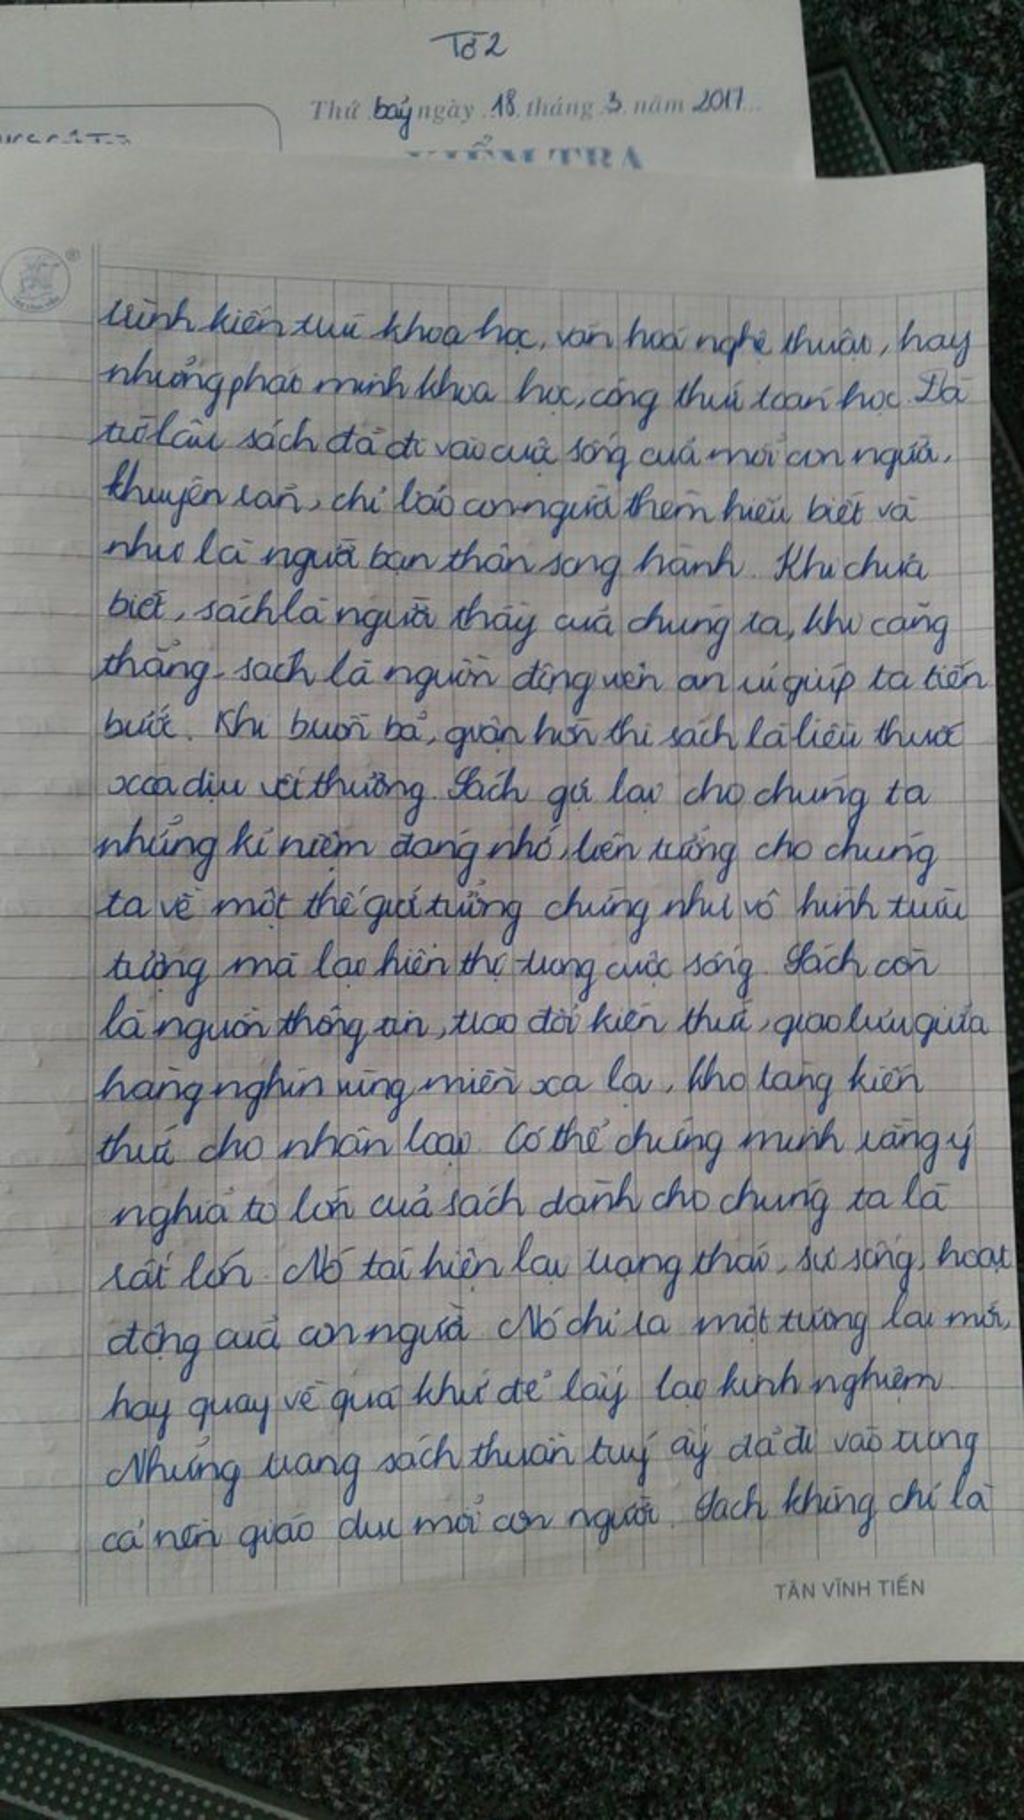 Tờ 2
Thứ bảy ngày 18 tháng 3 năm 2017
KIỂM TRA
trình kiến thức khoa học, văn hoá nghệ thuật, hay
những phát minh khoa học, công thức toán học. Đã
từ lâu sách đã đi vào cuộc sống của mỗi con người,
khuyên răn, chỉ bảo con người thêm hiểu biết và
như là người bạn thân song hành. Khi chưa
biết, sách là người thầy của chúng ta, khi căng
thẳng sách là nguồn động viên an ủi giúp ta tiến
bước. Khi buồn bã, giận hờn thì sách là liều thuốc
xoa dịu vết thương. Sách gợi lại cho chúng ta
những kỉ niệm đáng nhớ, liên tưởng cho chúng
ta về một thế giới tưởng chừng như vô hình trừu
tượng mà lại hiển thị trong cuộc sống. Sách còn
là nguồn thông tin, trao đổi kiến thức, giao lưu giữa
hàng nghìn vùng miền xa lạ, kho tàng kiến
thức cho nhân loại. Có thể chứng minh rằng ý
nghĩa to lớn của sách dành cho chúng ta là
rất lớn. Nó tái hiện lại trạng thái, sự sống, hoạt
động của con người. Nó chỉ ra một tương lai mới,
hay quay về quá khứ để lấy lại kinh nghiệm
Những trang sách thuần tuý ấy đã đi vào trong
cả nền giáo dục mỗi con người. Sách không chỉ là
TÂN VĨNH TIẾN